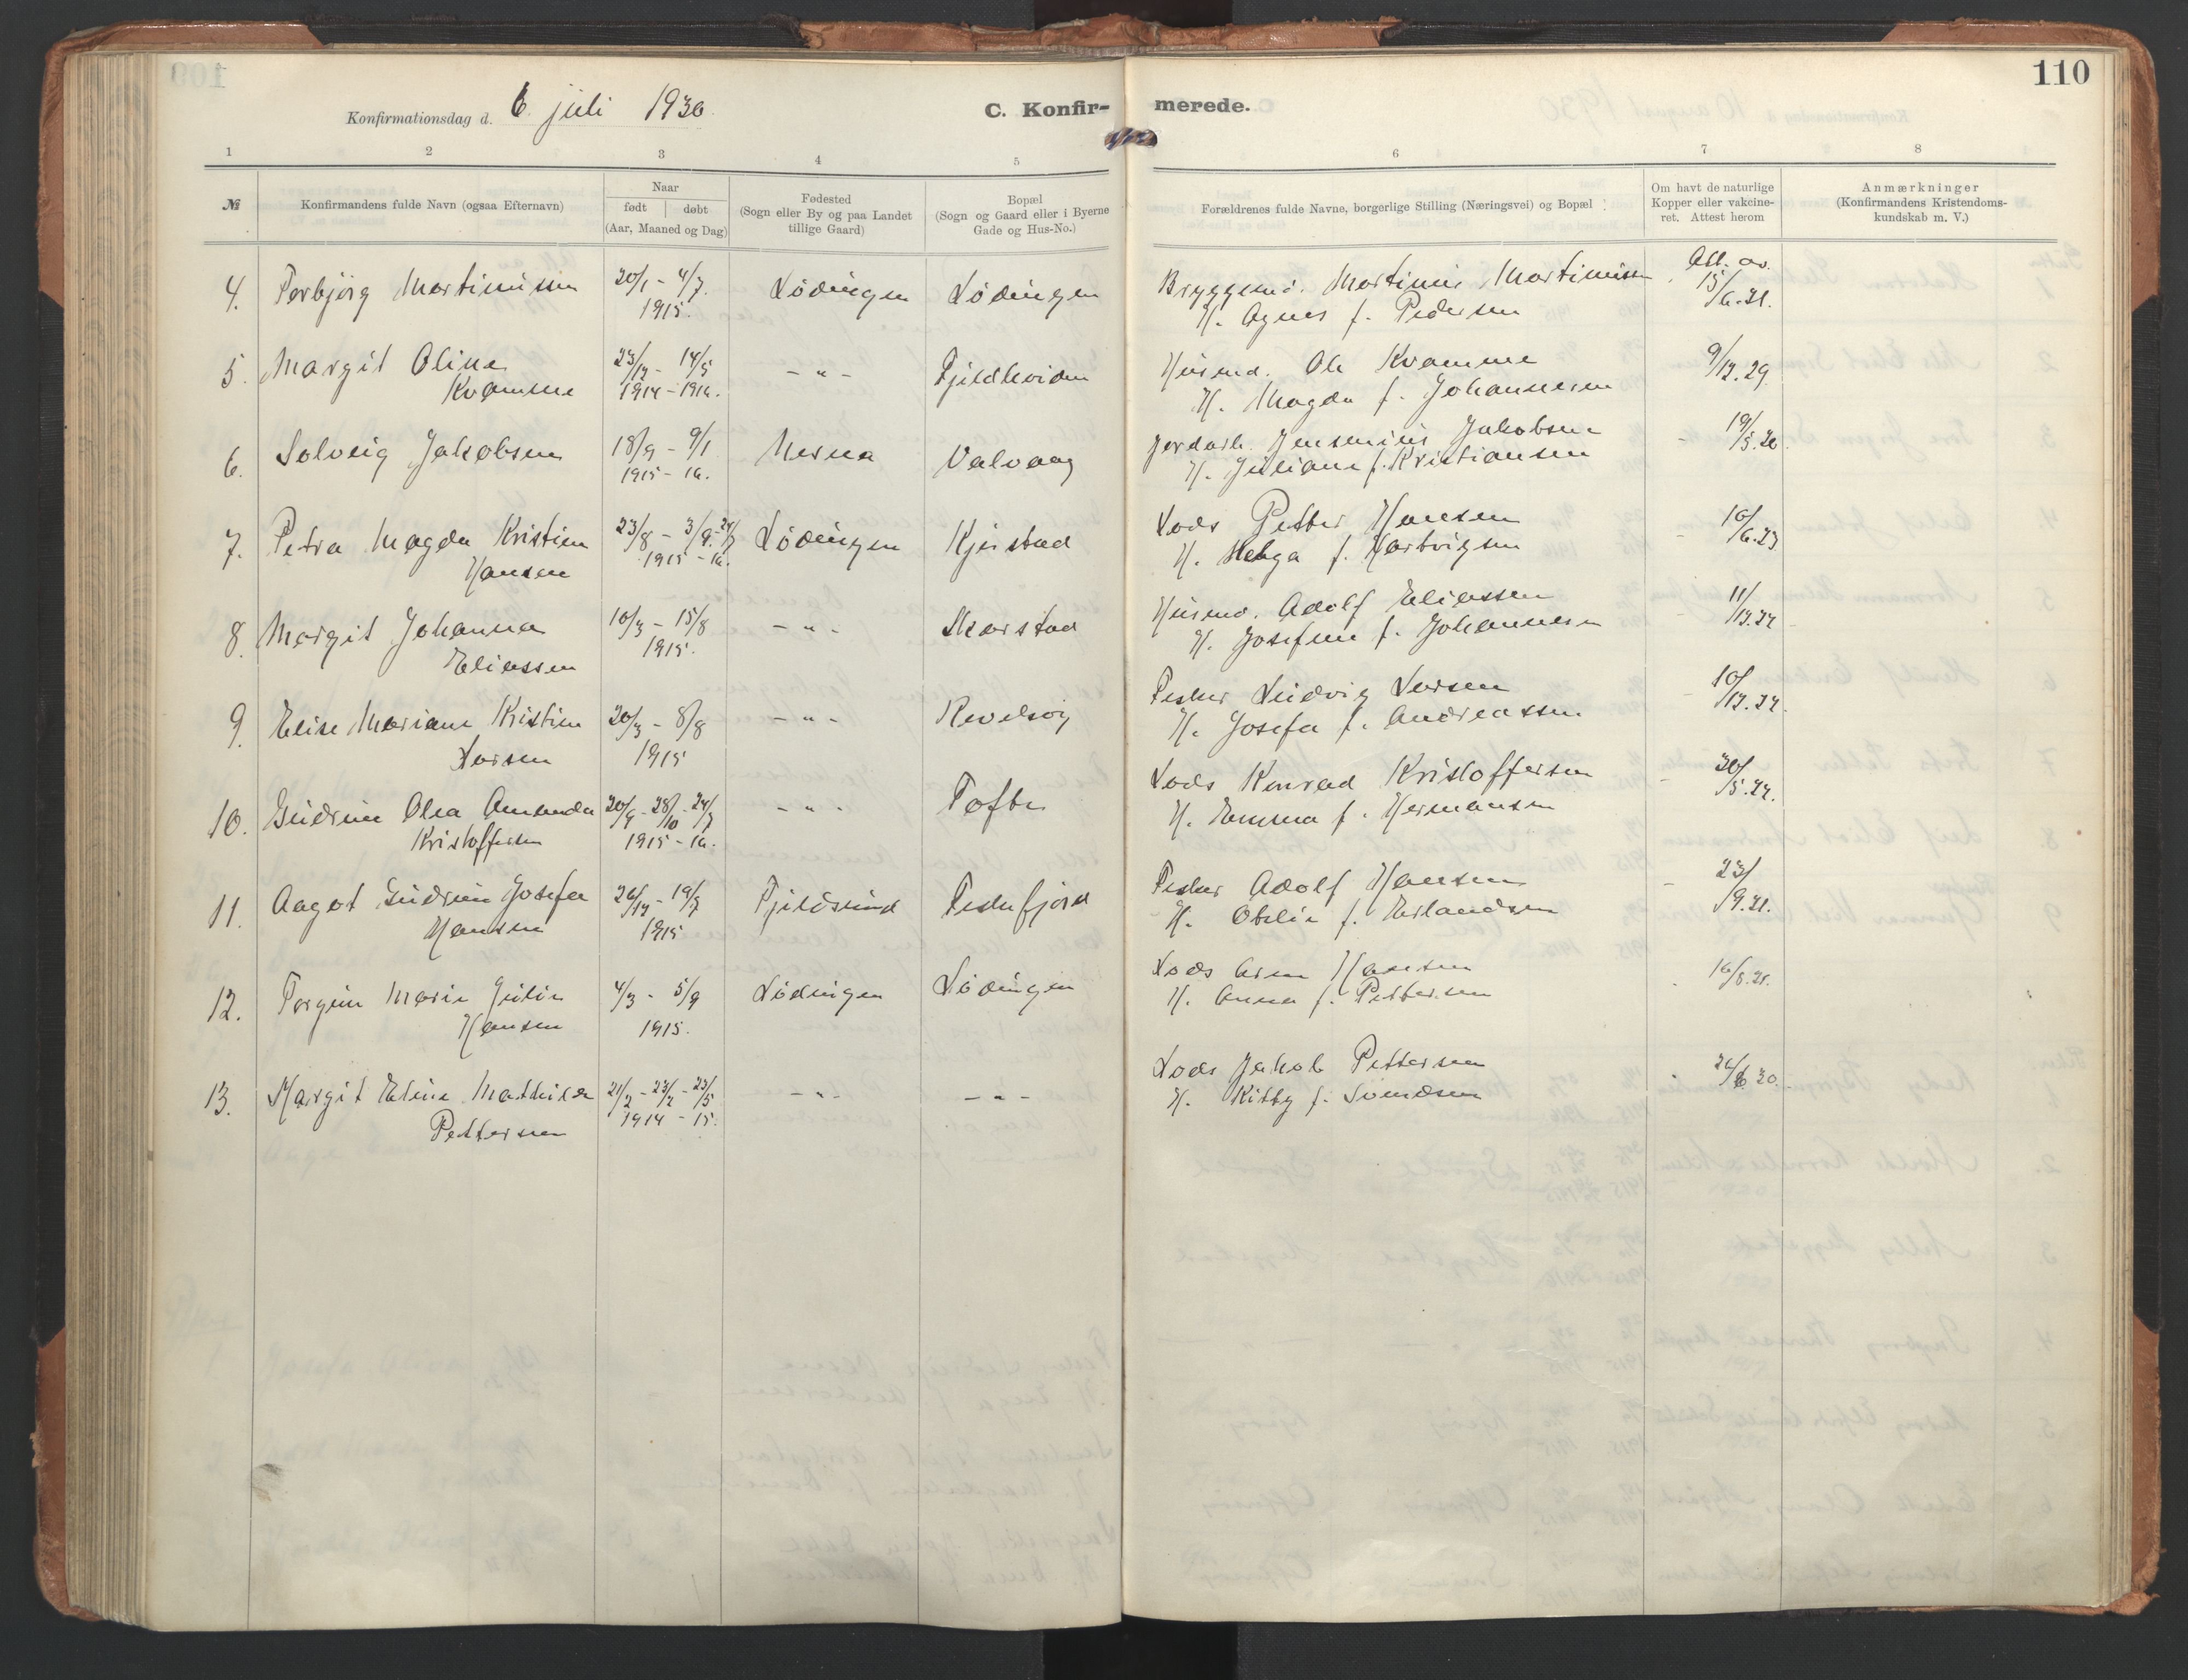 110
Konfirmationsdag d. 6. juli 1930.
C. Konfir-
merede.
1 2 3 4 5 6 7 8
№
Konfirmandens fulde Navn (ogsaa Efternavn)
Naar
født døbt
(Aar, Maaned og Dag)
Fødested
(Sogn eller By og paa Landet
tillige Gaard)
Bopæl
(Sogn og Gaard eller i Byerne
Gade og Hus-No.)
Forældrenes fulde Navne, borgerlige Stilling (Næringsvei) og Bopæl
Om havt de naturlige
Kopper eller vakcine-
ret. Attest herom
Anmærkninger
(Konfirmandens Kristendoms-
kundskab m. V.)
4. Torbjørg Martinussen 20/1 - 4/7. Lødingen Lødingen Martinus Martinussen Att. av.
1915. H. Agnes f. Pedersen 15/6.21.
5. Margit Oline 23/12 - 14/5 - " - Fjeldkviden Husmd. Ole Kvamme 9/12.29.
Kvamme 1914 - 1916. H. Magda f. Johannesen
6. Solveig Jakobsen 18/9 - 9/1 Valvaag Jordarb. Jensenius Jakobsen - 19/5.20.
1915 - 16. H. Juliane f. Kristiansen
7. Petra Magda Kristine 23/8 - 3/9. 24/7 Lødingen Kjerstad Lods Petter Hansen - 10/6.23.
Hansen 1915 - 16. H. Helga f. Hartvigsen
8. Margit Johanna 10/3 - 15/8 - " - Skarstad Husmd. Adolf Eliassen - 11/12.24
Eliassen 1915. H. Josefine f. Johannesen
9. Elise Mariane Kristine 20/3 - 8/8 - " - Revelsøy Fisker Ludvig Larsen - 10/12.24.
Larsen 1915 H. Josefa f. Andreassen
10. Gudrun Olea Amanda 20/9 - 28/10 - 24/7 - " - Tofte Lods Konrad Kristoffersen - 30/5.24.
Kristoffersen 1915 - 16. H. Emma f. Hermansen
11. Aagot Gudrun Josefa 26/12 - 19/7 Fjeldsund Fiskefjord Fisker Adolf Hansen - 23/9.21.
Hansen 1915 H. Otelie f. Erlandsen
12. Torgun Marie Julie 4/3 - 5/9 Lødingen Lødingen Lods Arne Hansen 16/8.21.
Hansen 1915. H. Anna f. Pettersen
13. Margit Eline Mathilde 21/2 - 23/2 - 23/5 - " - - " - Lods Jakob Pettersen 20.
Pettersen 1914 - 15. H. Kitty f. Svendsen